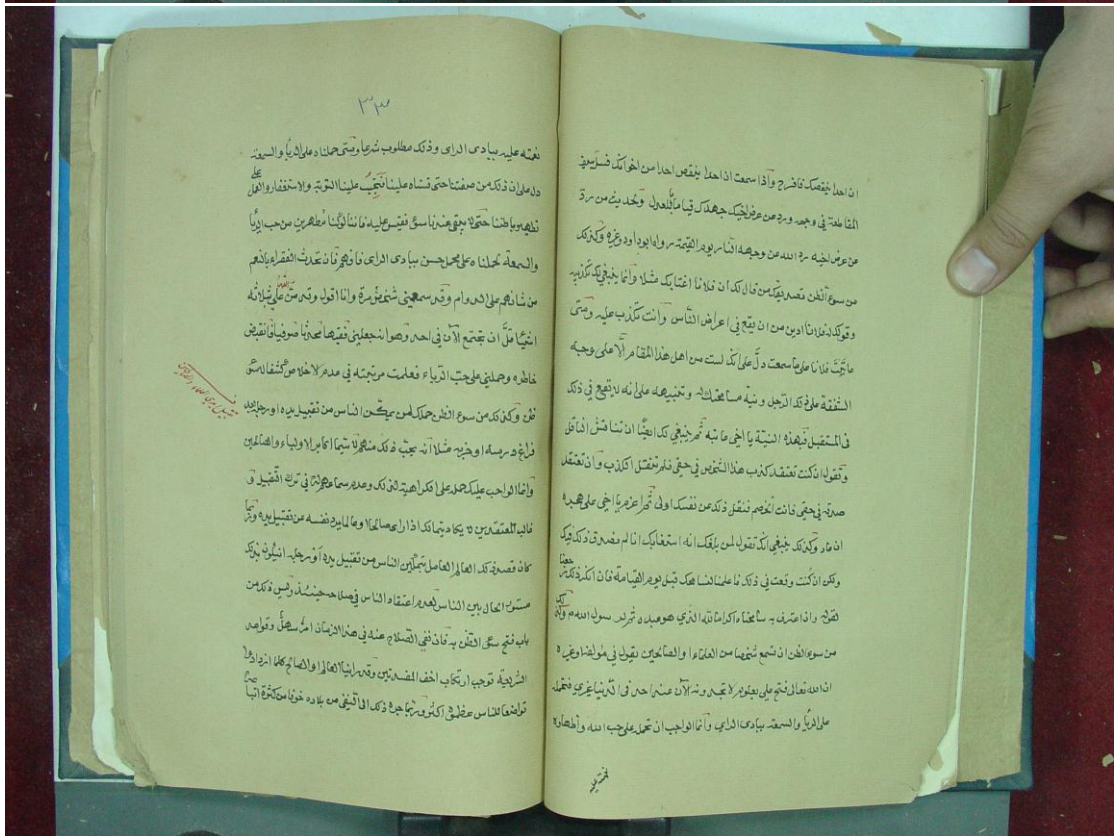 ان احدا ينقصك فافرح وأذا سمعت اذا احدا ينقص احدا من اخوانك فسل سيف
المقاطعة في وجهه ورد عن عرض اخيك جهدك قياما للعدل ولحديث من رد
عن عرض اخيه رد الله عن وجهه النار يوم القيمة رواه ابو داود وغيره وكذلك
من سوء الظن تصديقك من قال لك ان فلانا اغتابك مثلا وانما ينبغي لك تكذيبه
وقولك له فلانا ادين من ان يقع في اعراض الناس وانت تكذب عليه ومتى
فلانا على ما سمعت دل على انك لست من اهل هذا المقام الا على وجه
الشفقة على ذلك الرجل ونية مسامحتك له وتنبيهه على انه لا يقع في ذلك
في المستقبل فبهذه النية يا اخي عاتبه ثم ينبغي لك ايضا ان تناقش الناقل
وتقول ان كنت تعتقد كذب هذا الشخص في حقي فلم تنقل الكذب وان تعتقد
صدقه في حقي فانت الخصم فنقل ذلك عن نفسك اولى ثم اعزم يا اخي على هجره
ان عاد وكذلك ينبغي انك تقول لمن بلغك انه استغابك انا لم نصدق ذلك فيك
ولكن ان كنت وقعت في ذلك فاعلمنا لنسامحك قبل يوم القيامة فان انكر ذلك
لقوله واذا اعترف به سامحناه اكراما لله الذي هو عبده ثم لرسول الله م وكذلك
من سوء الظن ان تسمع شخصا من العلماء او الصالحين يقول في مؤلف او غيره
ان الله تعالى فتح علي بعلوم لا تجدونه الآن عند احد في الدنيا غيري فتحمله
على الريا والسمعة ببادى الراي وانما الواجب ان تحمله على حب الله واظهاره
نعمته عليه
٣٣
نعمته عليه ببادى الراى وذلك مطلوب شرعا ومتى حملناه على الريا والسمعة
دل على ان ذلك من صفتنا حتى قسناه علينا فتجب علينا التوبة والاستغفار والعمل على
تطهير باطننا حتى لا يبقى عندنا سوء فنقيس عليه فاننا لو كنا مطهرين من حب الريا
والسمعة لحملناه على محمل حسن ببادى الراى فافهم فان تحدث الفقراء بالنعم
من شانهم على الدوام وقد سمعني شخص مرة وانا اقول وقد من الله علي بثلاثة
اشيا قل ان تجتمع الآن في احد وهو انه جعلني فقيها محدثا صوفيا فانقبض
خاطره وحملني على حب الرياء فعلمت مرتبته في عدم الاخلاص كشفا لا سوء
ظن وكذلك من سوء الظن حملك لمن يمكن الناس من تقبيل يده او رجله بعد
فراغ درسه او حزبه مثلا انه يحب ذلك منهم لا سيما اكابر الاولياء والصالحين
وانما الواجب عليك حمله على الكراهية لذلك وعدم سماعهم له في ترك التقبيل و
غالب المعتقدين لا يكاد يتمالك اذا راى صالحا او عالما يرد نفسه عن تقبيل يده وربما
كان قصد ذلك العالم العامل بتمكين الناس من تقبيل يده او رجله ان يكون بذلك
مستور الحال بين الناس لعدم اعتقاد الناس في صلاحه حينئذ وليس ذلك من
باب فتح سوء الظن به فان نفي الصلاح عنه في هذا الزمان امر سهل وقواعد
الشريعة توجب ارتكاب اخف المفسدتين وقد راينا العالم او الصالح كلما ازداد
تواضعا للناس عظموه اكثر وربما جره ذلك الى النفي من بلاده خوفا من كثرة
تقبيل يدي العلماء والصالحين